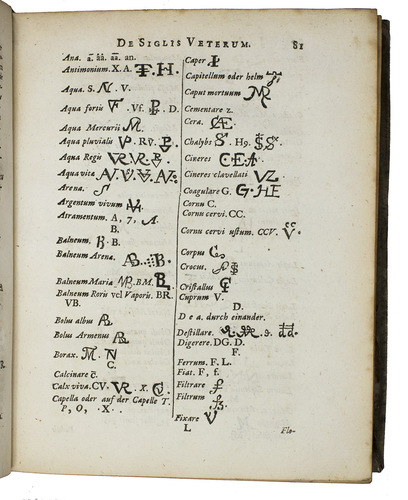 DE SIGLIS VETERUM. 81
Ana. a̅. a̅a̅. aa. an.
Antimonium. X. A.
Aqua. S. V.
Aqua fortis Vf. D.
Aqua Mercurii
Aqua pluvialis
Aqua Regis
Aqua vitæ
Arena.
Argentum vivum
Atramentum. A, 7,
B.
Balneum. B.
Balneum Arena.
Balneum Mariæ B.M.
Balneum Roris vel Vaporis. BR.
VB.
Bolus albus
Bolus Armenus
Borax.
C.
Calcinare c̅.
Calx viva. CV. X.
Capella oder auf der Capelle T.
P, O, X.
Caper
Capitellum oder helm
Caput mortuum
Cementare z.
Cera.
Chalybs H9.
Cineres
Cineres clavellati
Coagulare G.
Cornu C.
Cornu cervi. CC.
Cornu cervi ustum. CCV.
Corpus
Crocus.
Cristallus
Cuprum V.
D.
D e a. durch einander.
Destillare.
Digerere. DG. D.
F.
Ferrum. F. L.
Fiat. F, f.
Filtrare
Filtrum
Fixare
L Flo-